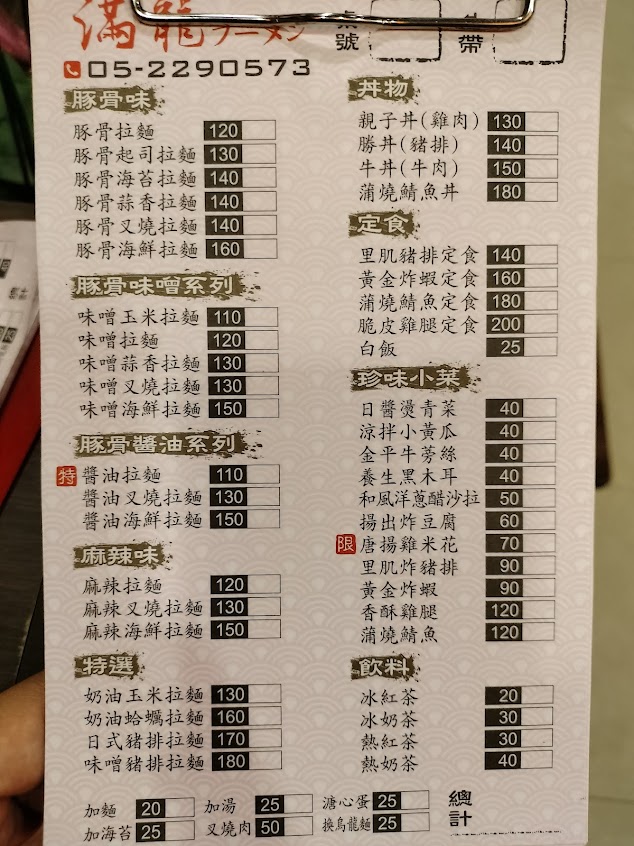 滿龍ラーメン
號
帶
05-2290573
豚骨味
豚骨拉麵 120
豚骨起司拉麵 130
豚骨海苔拉麵 140
豚骨蒜香拉麵 140
豚骨叉燒拉麵 140
豚骨海鮮拉麵 160
豚骨味噌系列
味噌玉米拉麵 110
味噌拉麵 120
味噌蒜香拉麵 130
味噌叉燒拉麵 130
味噌海鮮拉麵 150
豚骨醬油系列
特 醬油拉麵 110
醬油叉燒拉麵 130
醬油海鮮拉麵 150
麻辣味
麻辣拉麵 120
麻辣叉燒拉麵 130
麻辣海鮮拉麵 150
特選
奶油玉米拉麵 130
奶油蛤蠣拉麵 160
日式豬排拉麵 170
味噌豬排拉麵 180
丼物
親子丼(雞肉) 130
勝丼(豬排) 140
牛丼(牛肉) 150
蒲燒鯖魚丼 180
定食
里肌豬排定食 140
黃金炸蝦定食 160
蒲燒鯖魚定食 180
脆皮雞腿定食 200
白飯 25
珍味小菜
日醬燙青菜 40
涼拌小黃瓜 40
金平牛蒡絲 40
養生黑木耳 40
和風洋蔥醋沙拉 50
揚出炸豆腐 60
限 唐揚雞米花 70
里肌炸豬排 90
黃金炸蝦 90
香酥雞腿 120
蒲燒鯖魚 120
飲料
冰紅茶 20
冰奶茶 30
熱紅茶 30
熱奶茶 40
加麵 20 加湯 25 溏心蛋 25
加海苔 25 叉燒肉 50 換烏龍麵 25
總計